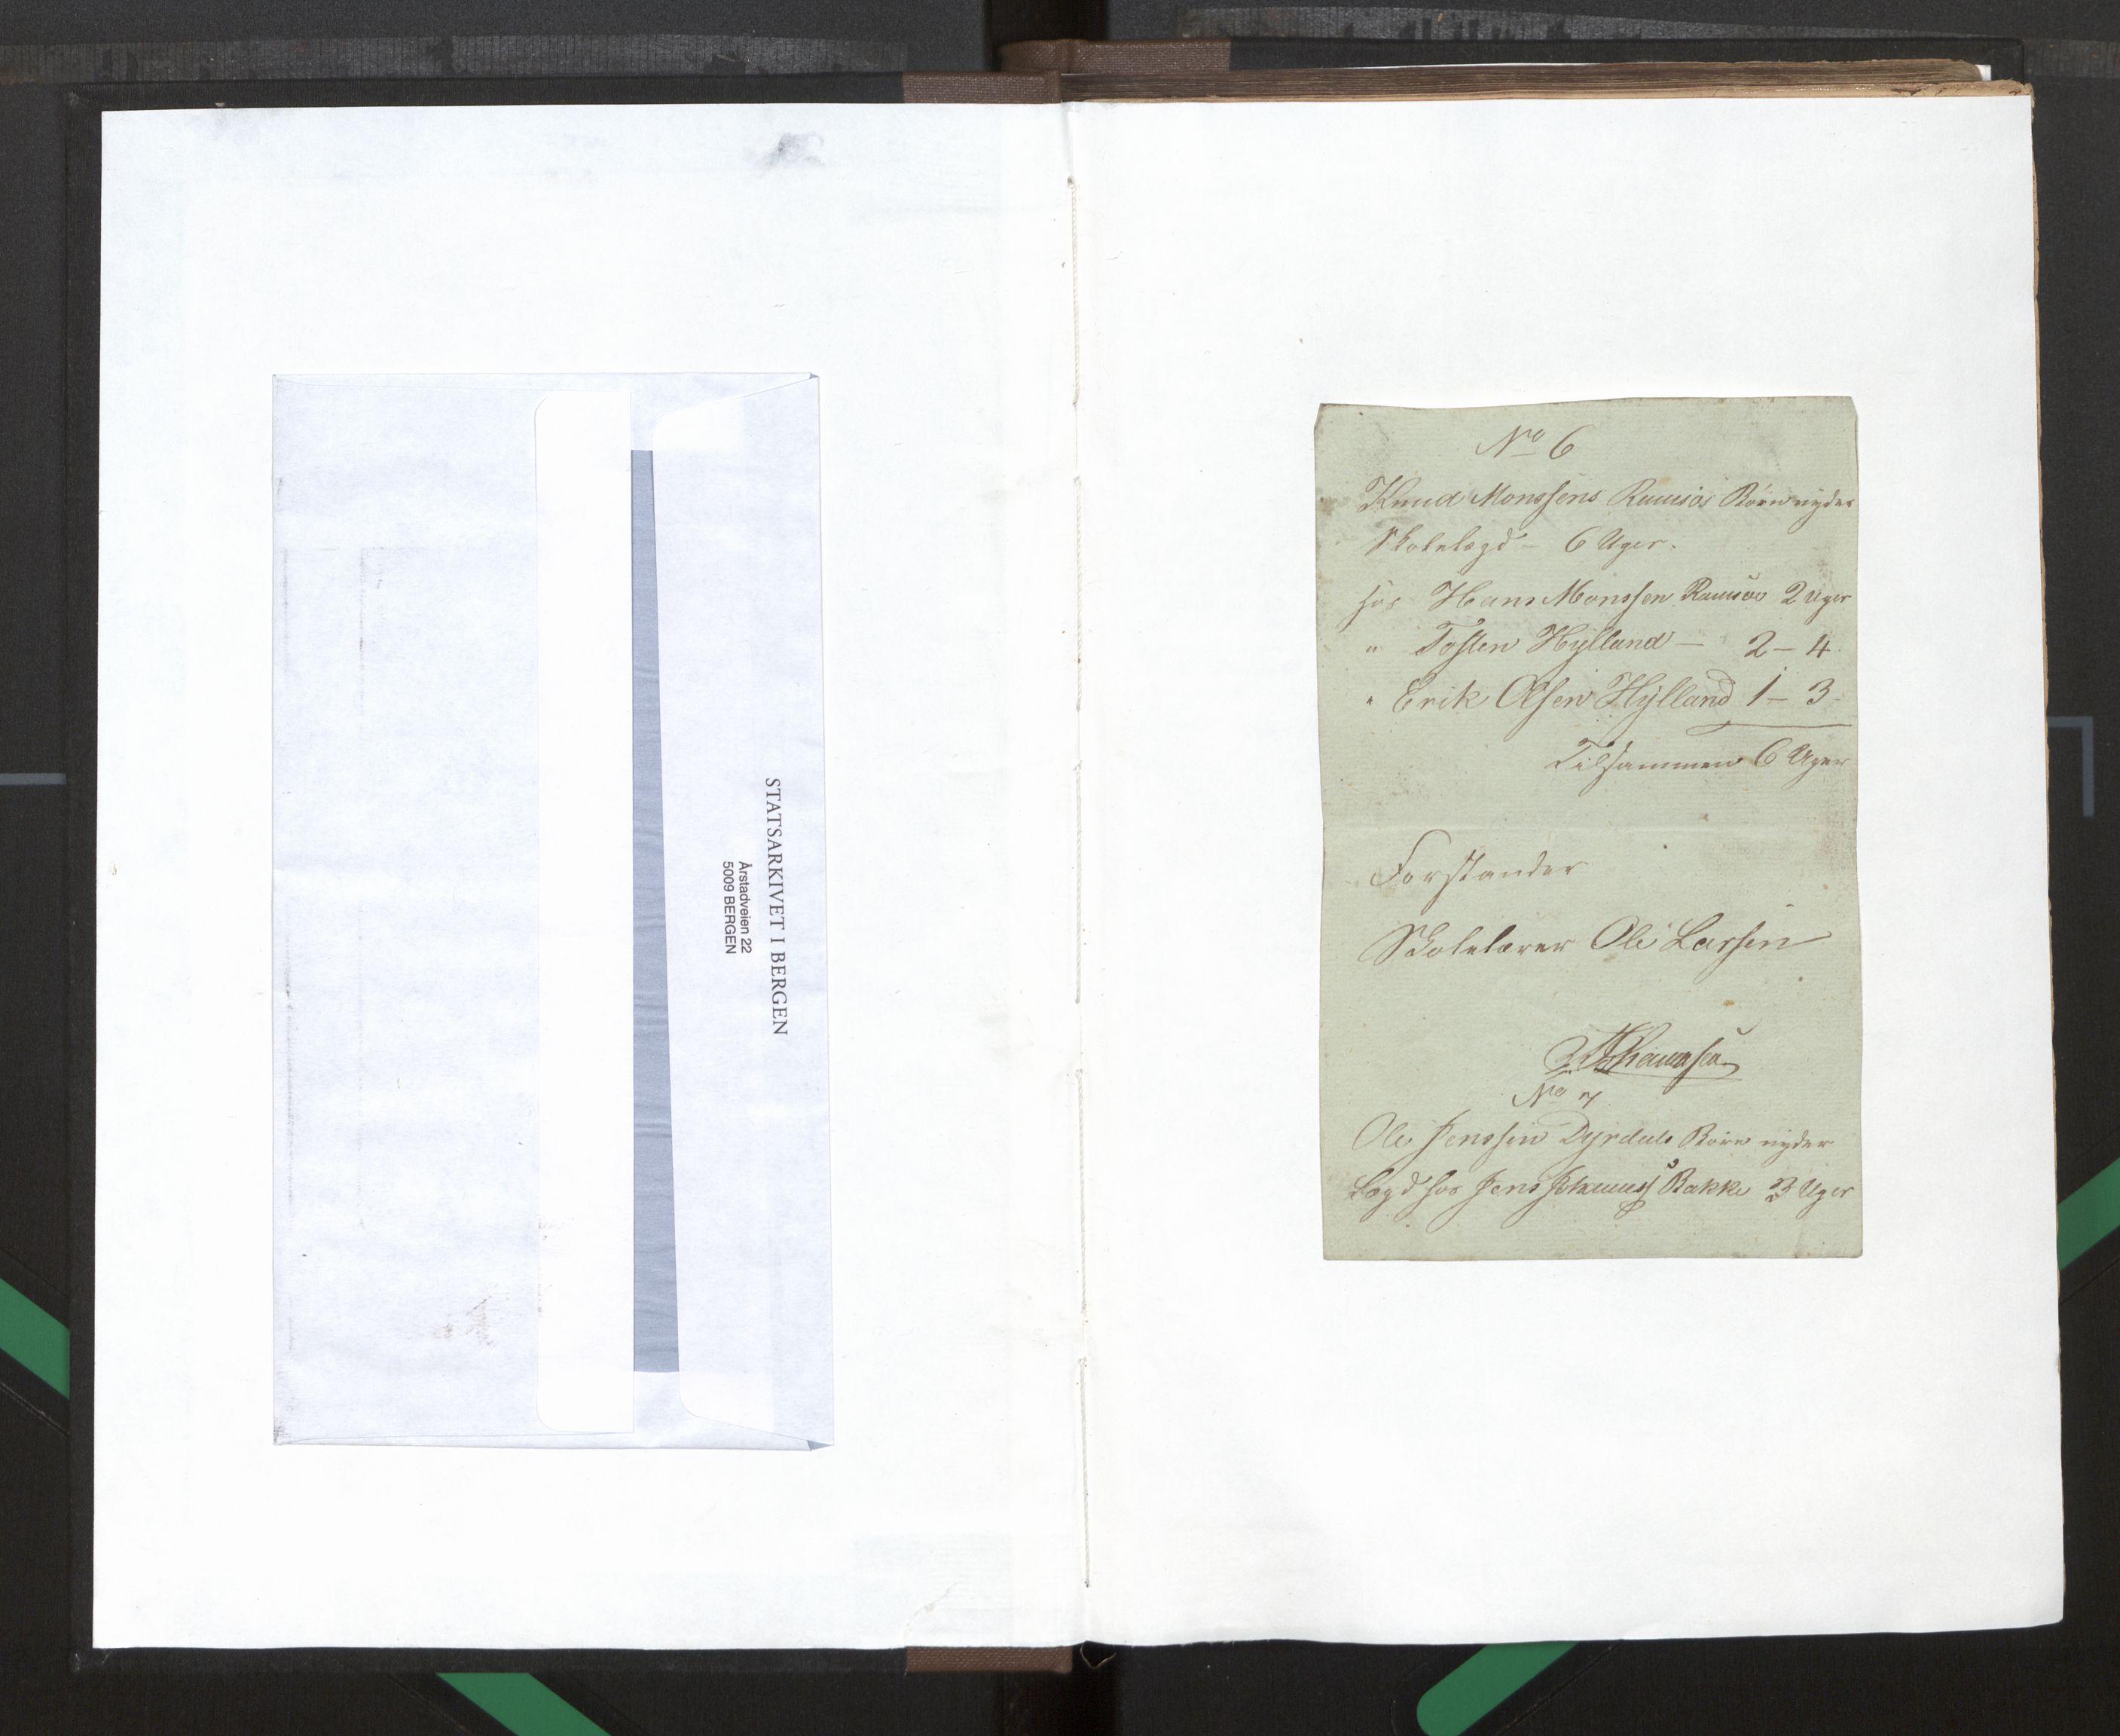 STATSARKIVET I BERGEN
Årstadveien 22
5009 BERGEN
No 6
Knud Monssens Ramsøs Børn nyder
Skolelægd - 6 Uger.
hos Hans Monssen Ramsøe 2 Uger
" Tosten Hylland - 2 - 4
" Erik Olsen Hylland 1 - 3
Tilsammen 6 Uger
Forstander
Skolelærer Ole Larsen
No 7
Ole Jenssen Dyrdals Børn nyder
Lægd hos Jens Bakke 3 Uger